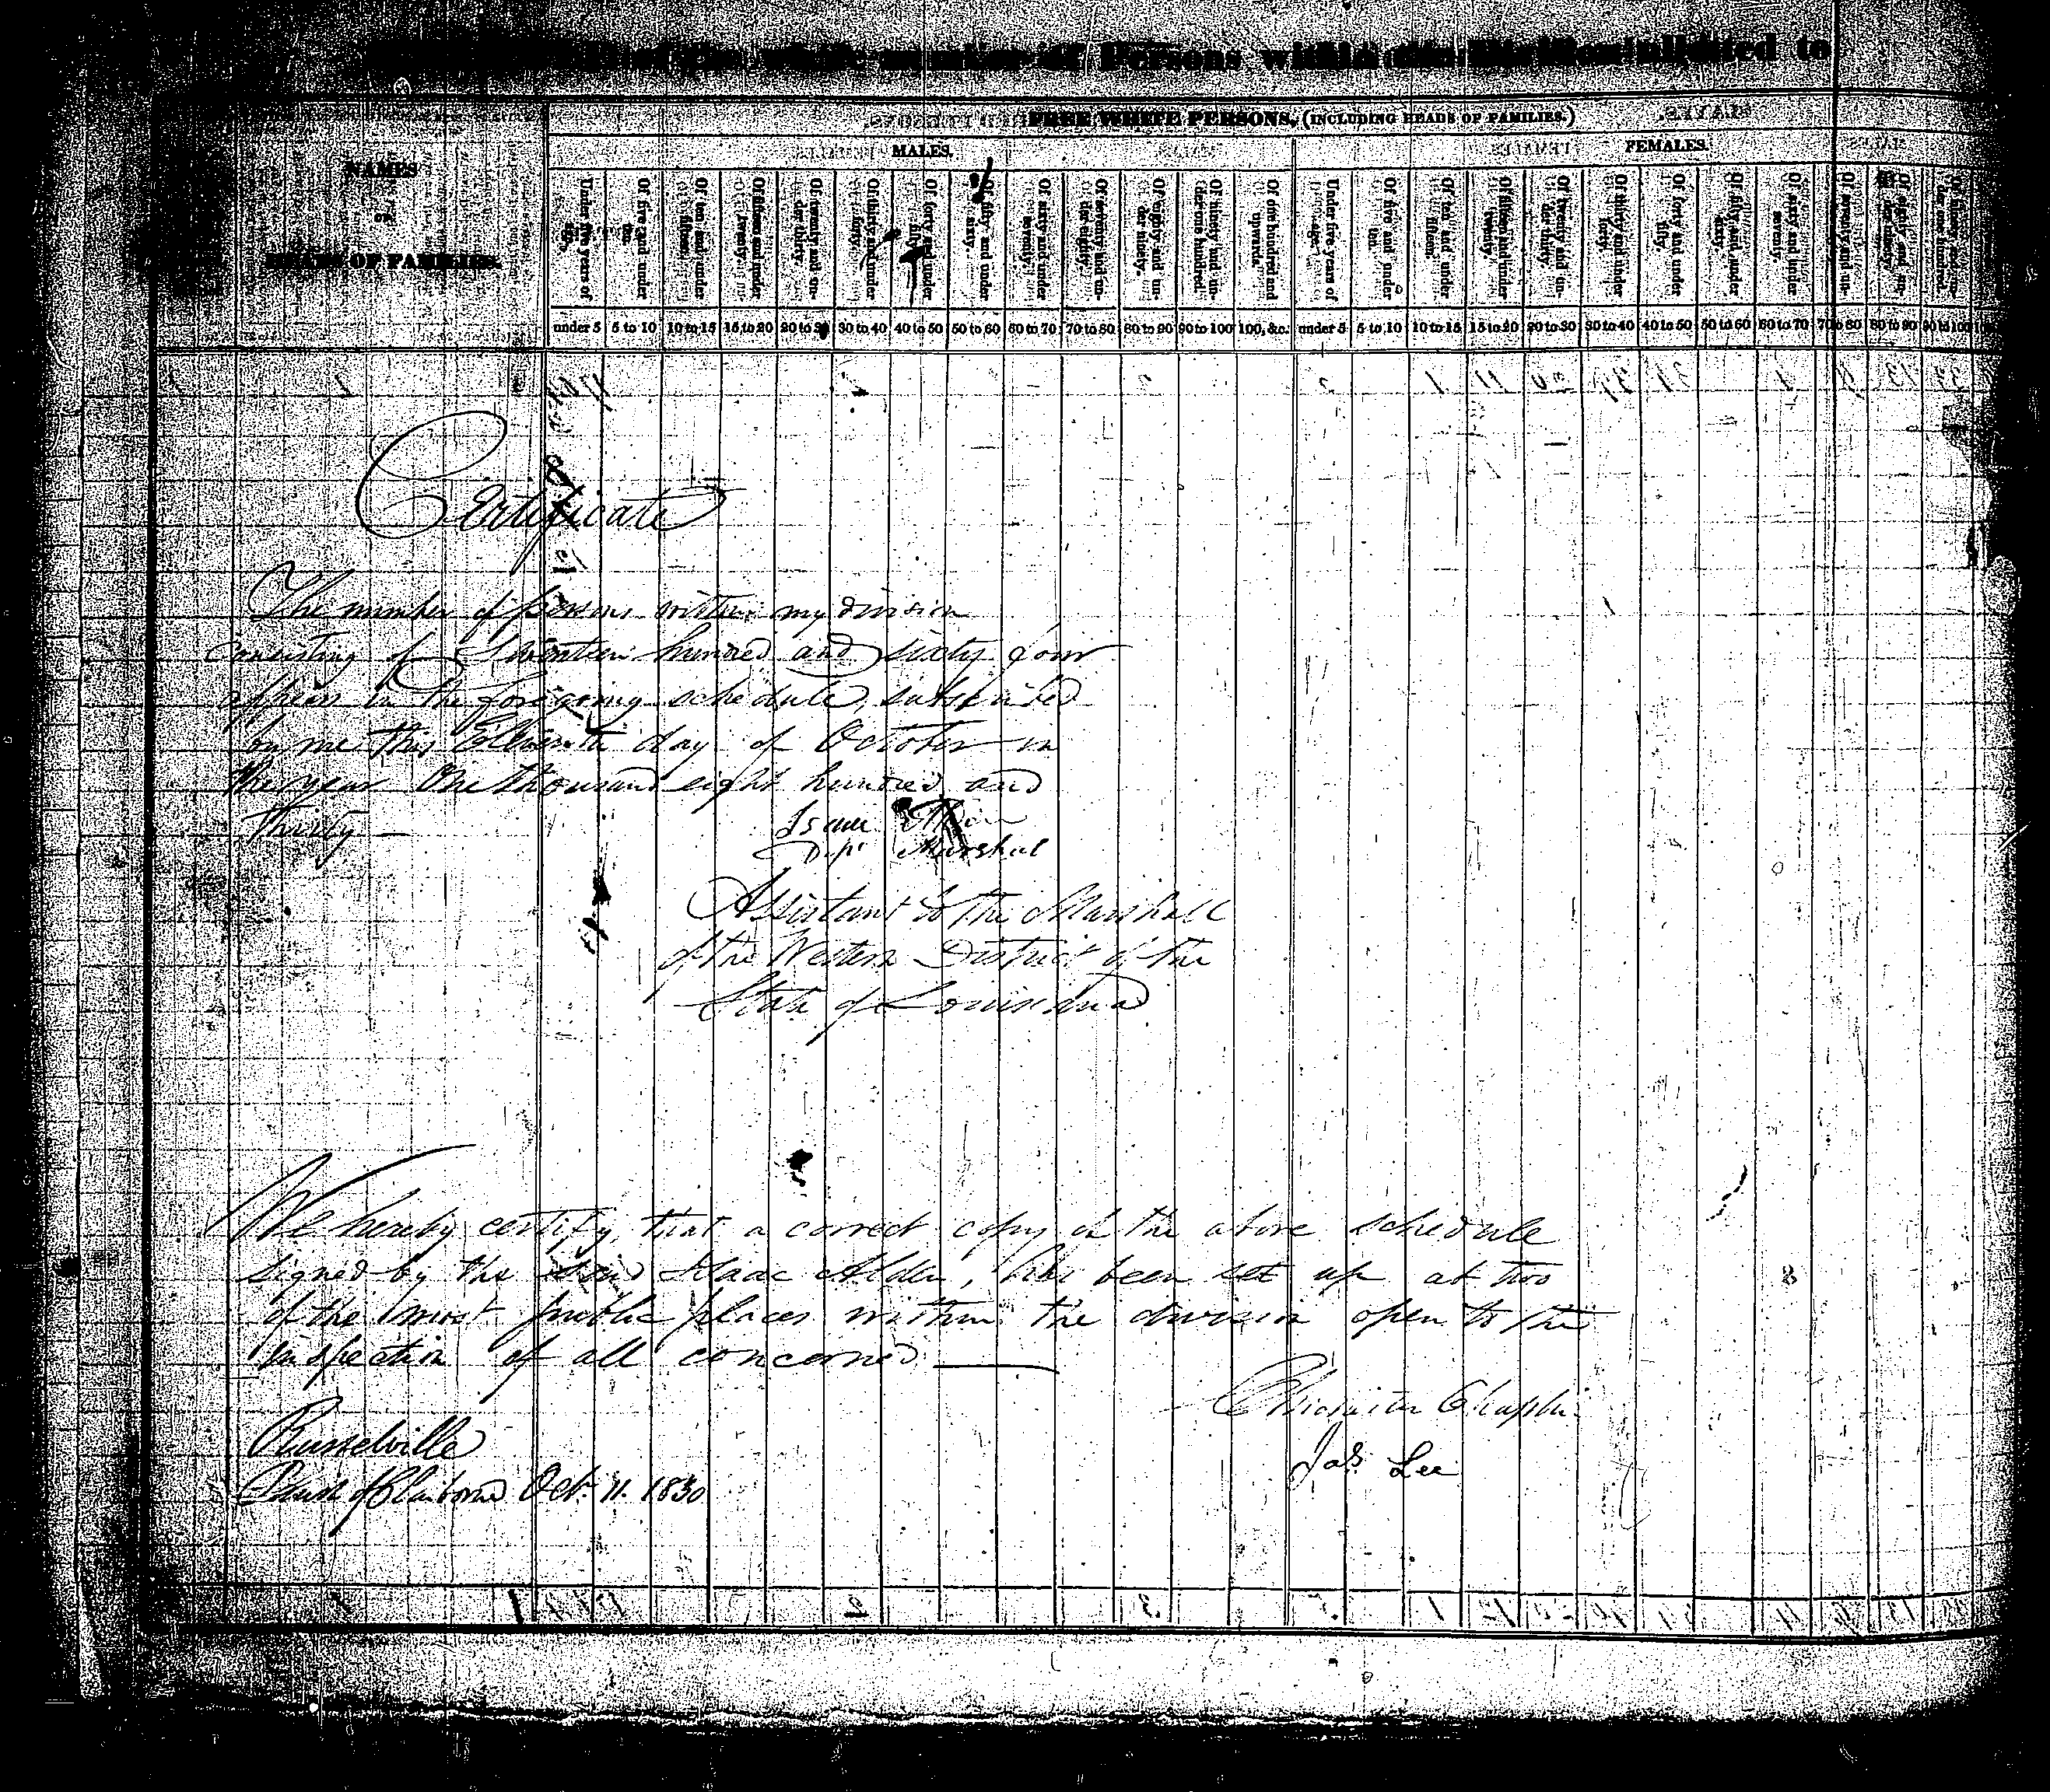 of the whole number of Persons within the Division allotted to
FREE WHITE PERSONS, (INCLUDING HEADS OF FAMILIES.)
MALES. FEMALES.
NAMES
OF
HEADS OF FAMILIES.
Under five years of age. Of five and under ten. Of ten and under fifteen. Of fifteen and under twenty. Of twenty and under thirty. Of thirty and under forty. Of forty and under fifty. Of fifty and under sixty. Of sixty and under seventy. Of seventy and under eighty. Of eighty and under ninety. Of ninety and under one hundred. Of one hundred and upwards. Under five years of age. Of five and under ten. Of ten and under fifteen. Of fifteen and under twenty. Of twenty and under thirty. Of thirty and under forty. Of forty and under fifty. Of fifty and under sixty. Of sixty and under seventy. Of seventy and un- Of eighty and un-der ninety. Of ninety and un-der one hundred.
under 5 5 to 10 10 to 15 15 to 20 20 to 30 30 to 40 40 to 50 50 to 60 60 to 70 70 to 80 80 to 90 90 to 100 100, &c. under 5 5 to 10 10 to 15 15 to 20 20 to 30 30 to 40 40 to 50 50 to 60 60 to 70 70 to 80 80 to 90 90 to 100
Certificate
The number of persons within my division
consisting of Seventeen hundred and sixty four
appears in the foregoing schedule, subscribed
by me this Eleventh day of October in
the year One thousand eight hundred and
Thirty —
Isaac Alden
Dpt Marshal
Assistant to the Marshall
of the Western District of the
State of Louisiana
We hereby certify, that a correct copy of the above schedule
signed by the said Isaac Alden, has been set up at two
of the most public places within the division open to the
inspection of all concerned —
Chaplin
Jas. Lee
Russelville
Parish of Claiborne Oct. 11. 1830